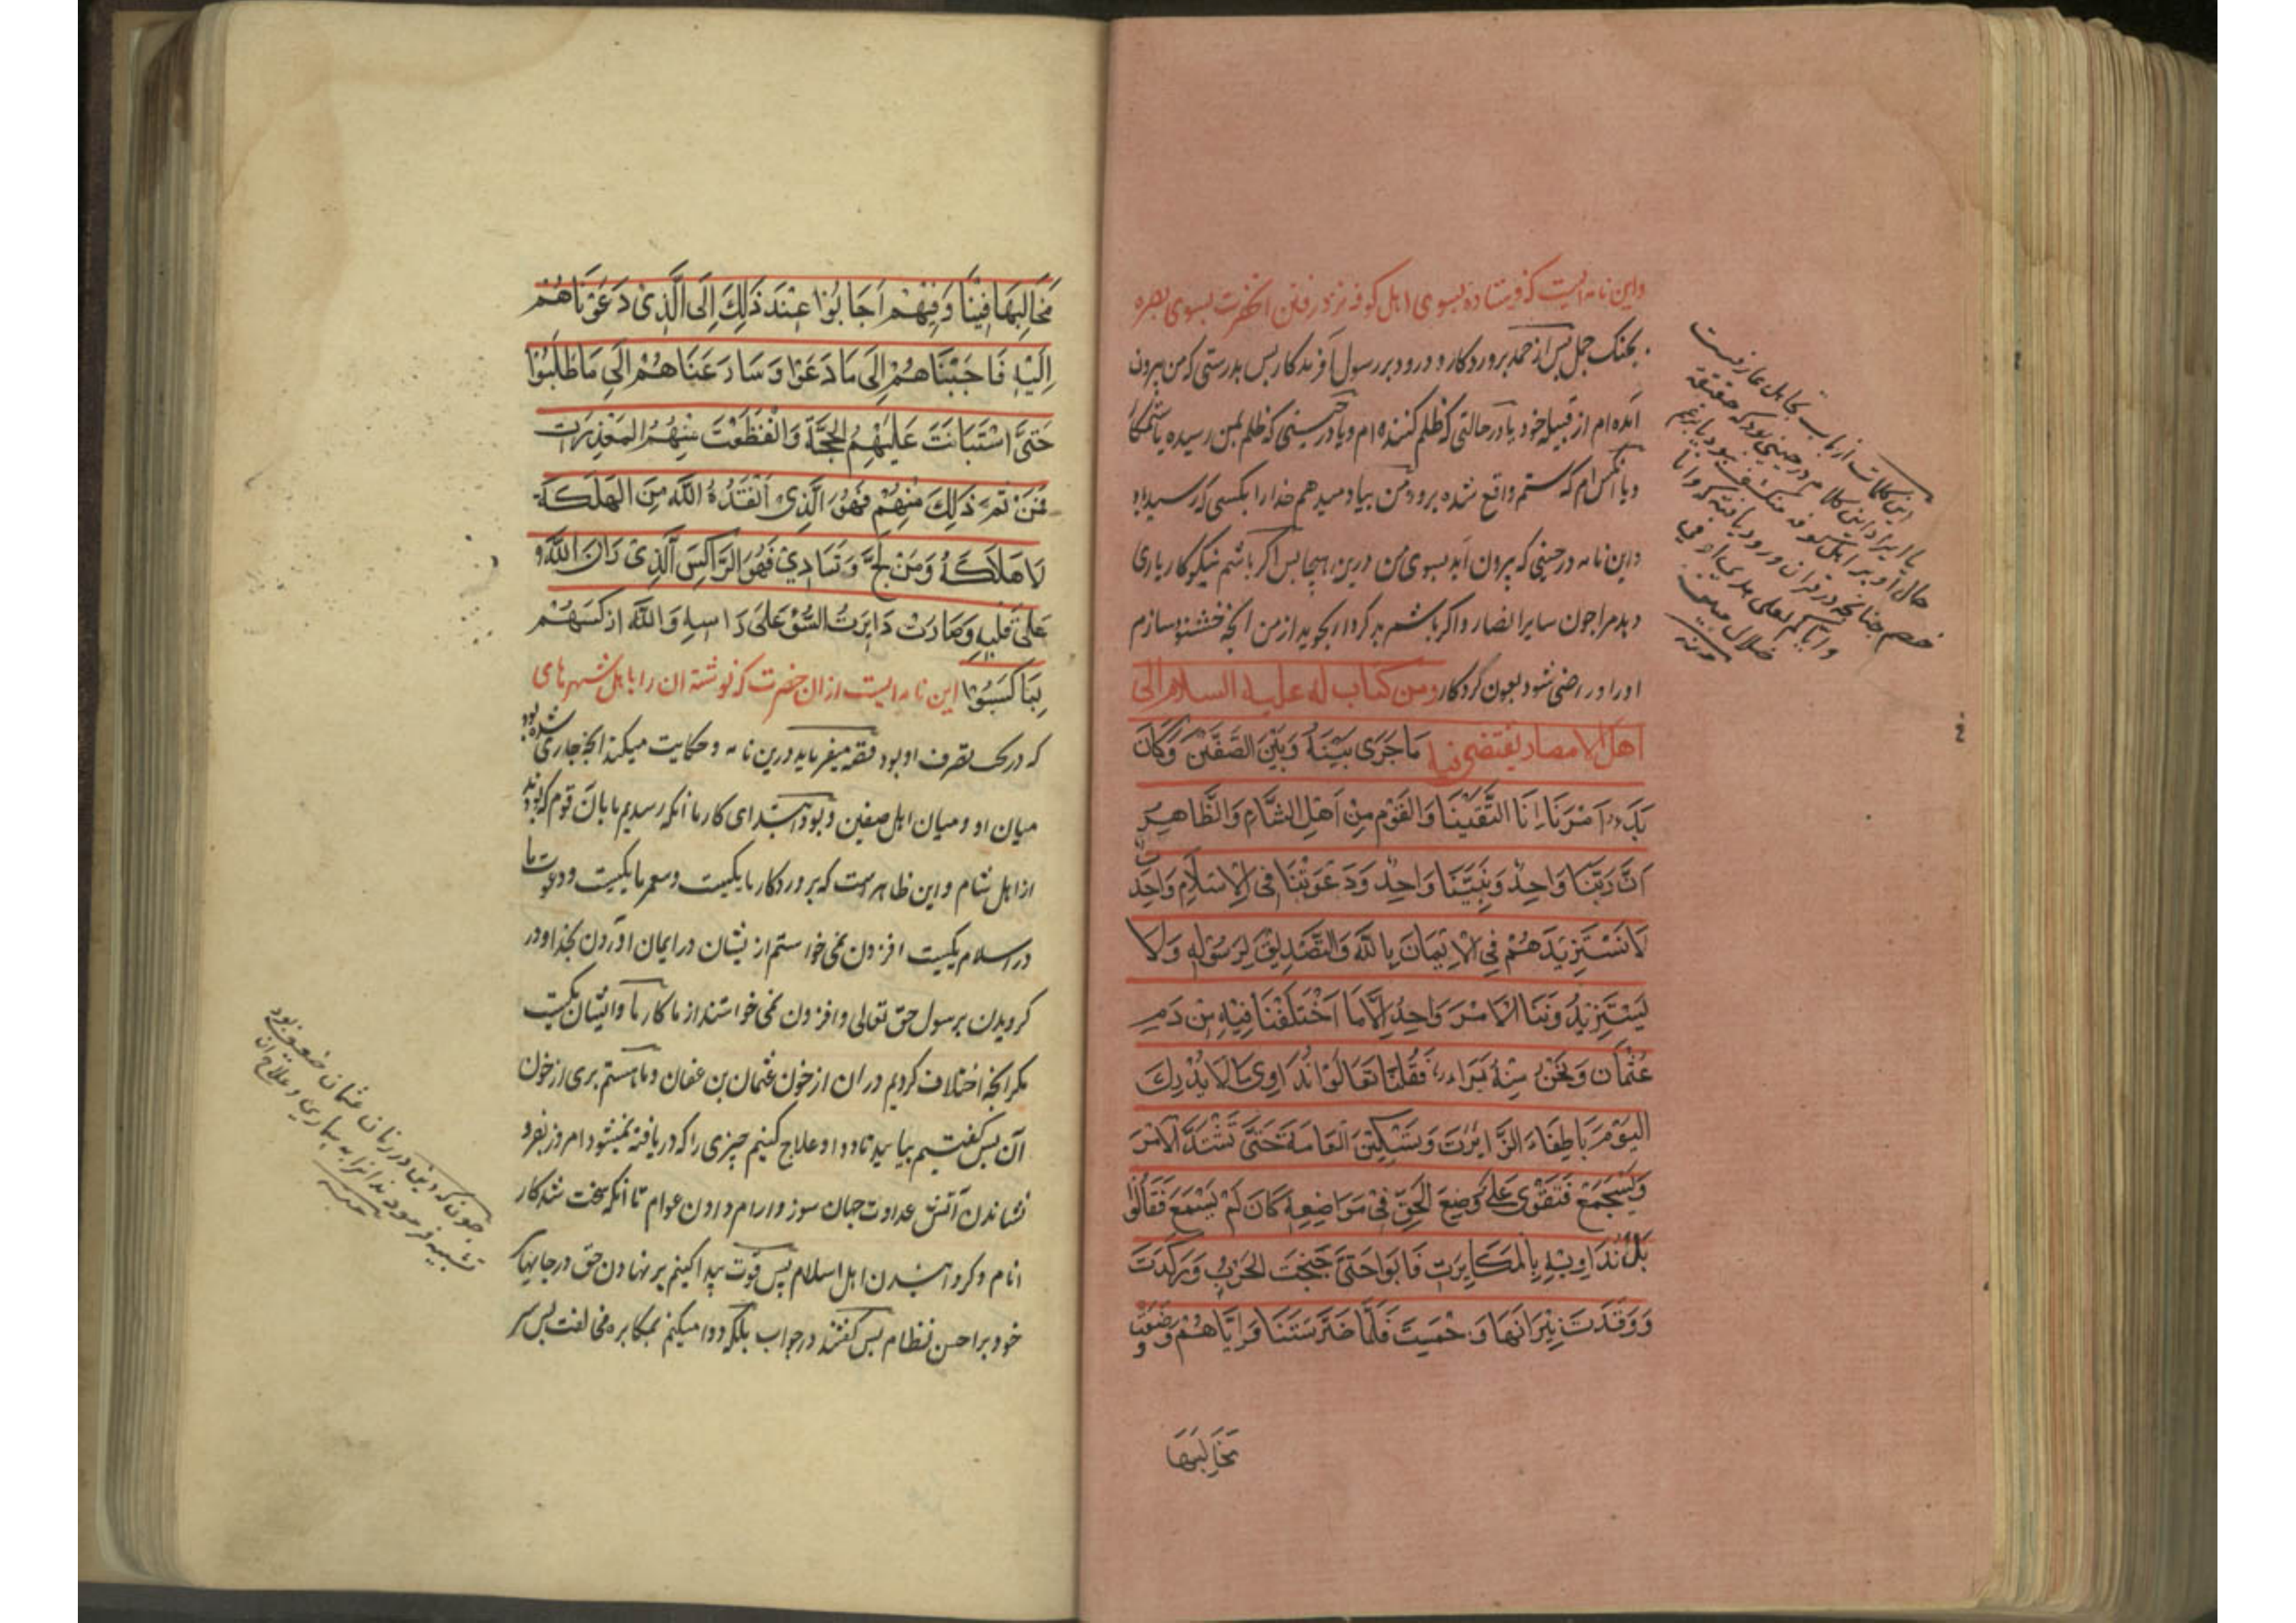 واین نامه ایست که فرستاده بسوی اهل کوفه نزد رفتن انحضرت بسوی بصره
بجنک جمل پس از حمد پروردکار و درود بر رسول آفریدکار پس بدرستی که من بیرون
آمده ام از قبیله خود یا در حالتی که ظلم کننده ام و یا در حینی که ظلم بمن رسیده یا ستمکار
و یا آنکس ام که ستم واقع شده برو و من بیاد میدهم خدا را بکسی که رسید باو
این نامه در حینی که بیرون آید بسوی من پس اکر باشم نیکو کار یاری
دهد مرا چون سایر انصار و اکر باشم بد کردار بجوید از من انچه خشنود سازم
اورا و راضی شود بعون کردکار ومن کتاب له علیه السلام الی
اهل الامصار یقتضی فیه مَا جَرَی بَیْنَهُ وَبَیْنَ الصَفَّیْنَ وَکَانَ
بَدءُ اَمْرِنَا اِنَّا الْتَّقَیْنَا وَالْقَوْمُ مِنْ اَهْلِ الشَّامِ وَالظَّاهِرُ
اَنَّ رَبَّنَا وَاحِدٌ وَنَبِیَّنَا وَاحِدٌ وَدَعْوَتَنَا فِی الْاِسْلَامِ وَاحِدَة
لَا نَسْتَزِیدَهُمْ فِی الْاِیْمَانَ بِاللَّهِ وَالتَّصْدِیْقِ لِرَسُوْلِهِ وَلَا
یَسْتَزِیدُونَنَا الْاَمْرَ وَاحِدٌ اِلَّا مَا اَخْتَلَفْنَا فِیْهِ مِنْ دَمِ
عُثْمَان وَنَحْنُ مِنْهُ بَرَاءٌ فَقُلْنَا تَعَالَوْا نُدَاوِی مَا لَا یُدْرِکَ
الیَوْمَ بِاِطْفَاءِ النَّایِرَتِ وَتَسْکِیْنِ الْعَامَةِ حَتّیَ تَشْتَدَّ الْاَمْرَ
وَیَسْتَجْمِعْ فَنَقْوَی عَلَی وَضِعَ الْحَقِّ فِی مَوَاضِعِهِ فَقَالُوا
بَلْ نُدَاوِیْهِ بِالْمَکَابِرَتِ فَاَبَوْا حَتّیَ جَنَحَتِ الْحَرْبُ وَرَکَدَتْ
وَوَقَدَتْ نِیْرَانُهَا وَحَمِیَتْ فَلَمَّا ضَرَّسَتْنَا وَاِیَّاهُمْ وَضَعَتْ
مَخَالِبَهَا
این کلمات از باب تجاهل عارفست
مَخَالِبَهَا فِیْنَا وَفِیْهِمْ اَجَابُوْا عِنْدَ ذَلِکَ اِلَی الَّذِیْ دَعَوْنَاهُمْ
اِلَیْهِ فَاَجَبْنَاهُمْ اِلَی مَا دَعَوْا وَسَارَعَنَاهُمْ اِلَی مَا طَلَبُوْا
حَتّیَ اسْتَبَانَتَ عَلَیْهِمُ الْحُجَّةَ وَانْقَطَعَتْ مِنْهُمُ الْمَعْذِرَت
فَمَنْ تَمَّ ذَلِکَ مِنْهُمْ فَهُوَ الَّذِیْ اَنْقَذَهُ اللَّهُ مِنَ الْهَلَکَةِ
وَمَنْ لَجَّ وَتَمَادِیْ فَهُوَ الرَّاکِسَ الَّذِیْ رَانَ اللَّهُ
عَلَی قَلْبِهِ وَصَارَتْ دَایِرَتُ السَّوْءِ عَلَی رَاسِهِ وَاللَّهُ ارْکَسَهُمْ
بِمَا کَسَبُوْا این نامه ایست از ان حضرت که نوشته ان را باهل شهرهای
که در تحت تصرف او بود قصه میفرماید درین نامه و حکایت میکند انچه جاری شده بود
میان او و میان اهل صفین و بود ابتدای کار ما آنکه رسیدیم ما بان قوم که بودند
از اهل شام و این ظاهر است که پروردکار ما یکیست و پیغمبر ما یکیست و دعوت ما
در اسلام یکیست افزودن نمی خواستم از یشان در ایمان اوردن بخدا و در
کرویدن برسول حق تعالی و افزودن نمی خواستند از ما کار ما و ایشان یکیست
مکر انچه اختلاف کردیم در ان از خون عثمان بن عفان و ما هستم بری از خون
آن پس کفتیم بیایید تا دوا و علاج کنیم چیزی را که دریافته نمیشود امروز بفرو
نشاندن آتش عداوت جهان سوز و ارام دادن عوام تا آنکه سخت شد کار
انام و کرد امدن اهل اسلام پس قوت پیدا کنیم بر نهادن حق در جایهای
خود بر احسن نظام پس کفتند در جواب بلکه دوا میکنم بمکابره و مخالفت پس سر
چون که دین در زمان عثمان ضعیف بود
تشبیه فرمودند انرا به بیماری و علاج ان